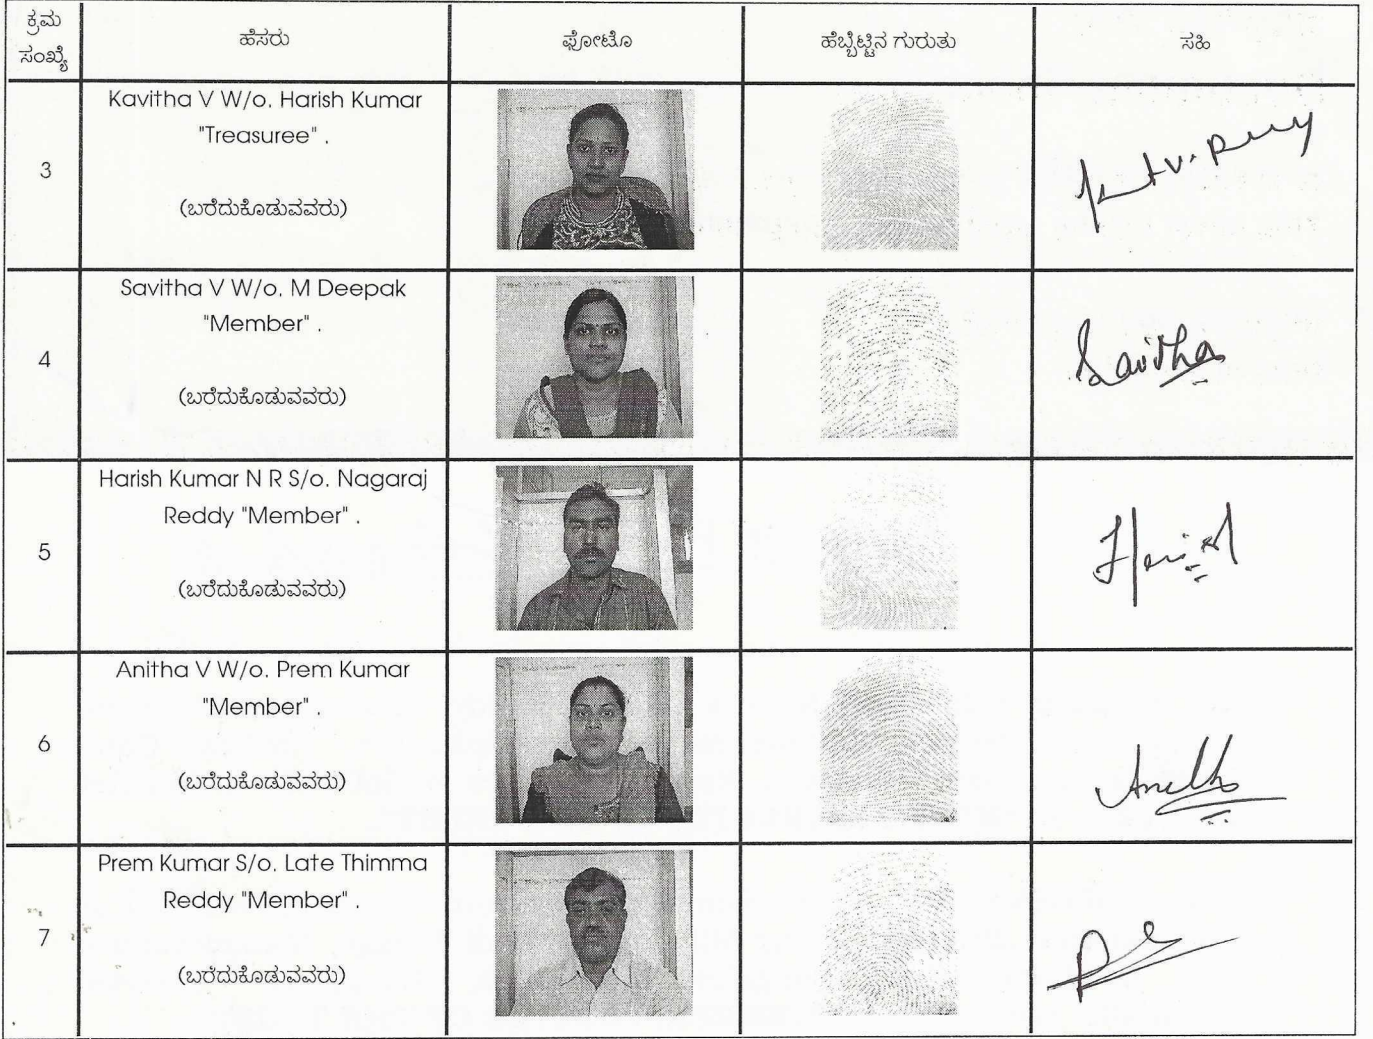 ಕ್ರಮ ಸಂಖ್ಯೆ ಹೆಸರು ಫೋಟೊ ಹೆಬ್ಬೆಟ್ಟಿನ ಗುರುತು ಸಹಿ
Kavitha V W/o. Harish Kumar
"Treasuree" .
3
(ಬರೆದುಕೊಡುವವರು)
Savitha V W/o. M Deepak
"Member" .
4 Savitha
(ಬರೆದುಕೊಡುವವರು)
Harish Kumar N R S/o. Nagaraj
Reddy "Member" .
5 Harish
(ಬರೆದುಕೊಡುವವರು)
Anitha V W/o. Prem Kumar
"Member" .
6
(ಬರೆದುಕೊಡುವವರು)
Prem Kumar S/o. Late Thimma
Reddy "Member" .
7
(ಬರೆದುಕೊಡುವವರು)